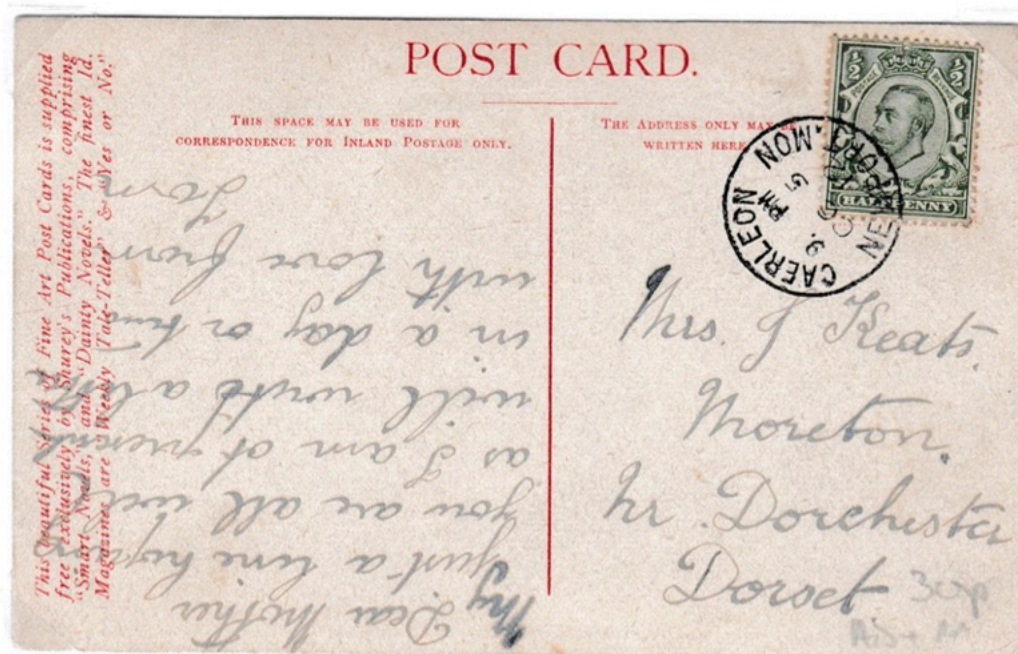 POST CARD.
THIS SPACE MAY BE USED FOR
CORRESPONDENCE FOR INLAND POSTAGE ONLY.
THE ADDRESS ONLY MAY BE
WRITTEN HERE
This beautiful Series of Fine Art Post Cards is supplied
free exclusively by Shurey's Publications, comprising
"Smart Novels," and "Dainty Novels." The finest 1d.
Magazines are "Weekly Tale-Teller" & "Yes or No."
½ ½
POSTAGE REVENUE
HALFPENNY
CAERLEON
NEWPORT. MON
9. PM
5
My Dear Mother
Just a line hoping
you are all well
as I am at present
will write a letter
in a day or two
with love from
Tom
Mrs. J Keats.
Moreton.
Nr. Dorchester
Dorset
30p